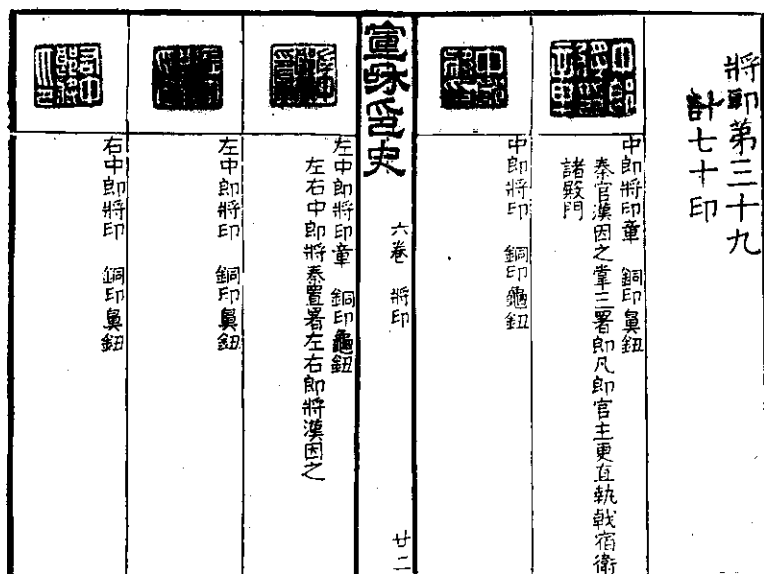 將印第三十九
計七十印
中郎將印章 銅印鼻鈕
秦官漢因之掌三署郎凡郎官主更直執戟宿衛
諸殿門
中郎將印 銅印龜鈕
宣和印史 六卷 將印 廿二
左中郎將印章 銅印龜鈕
左右中郎將秦置署左右郎將漢因之
左中郎將印 銅印鼻鈕
右中郎將印 銅印鼻鈕